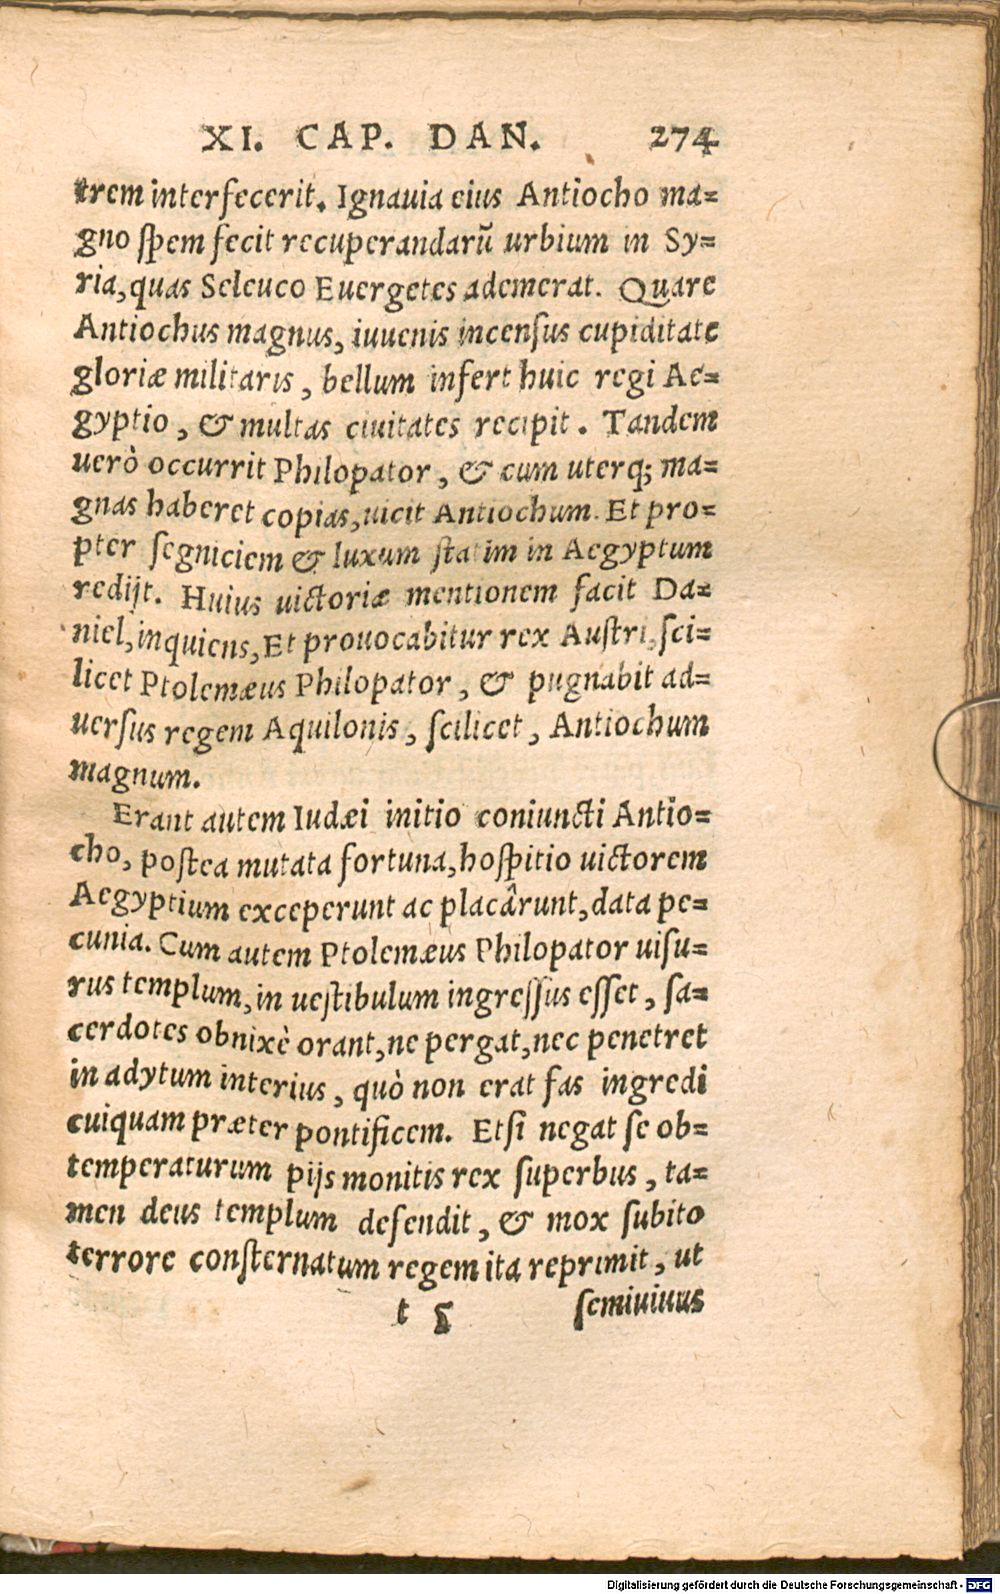 XI. CAP. DAN. 274
trem interfecerit. Ignauia eius Antiocho ma=
gno ſpem fecit recuperandarũ urbium in Sy=
ria, quas Seleuco Euergetes ademerat. Quare
Antiochus magnus, iuuenis incenſus cupiditate
gloriæ militaris, bellum infert huic regi Ae=
gyptio, & multas ciuitates recipit. Tandem
uerò occurrit Philopator, & cum uterq; ma=
gnas haberet copias, uicit Antiochum. Et pro=
pter ſegniciem & luxum ſtatim in Aegyptum
redijt. Huius uictoriæ mentionem facit Da=
niel, inquiens, Et prouocabitur rex Auſtri, ſci=
licet Ptolemæus Philopator, & pugnabit ad=
uerſus regem Aquilonis, ſcilicet, Antiochum
magnum.
Erant autem Iudæi initio coniuncti Antio=
cho, poſtea mutata fortuna, hoſpitio uictorem
Aegyptium exceperunt ac placârunt, data pe=
cunia. Cum autem Ptolemæus Philopator uiſu=
rus templum, in ueſtibulum ingreſſus eſſet, ſa=
cerdotes obnixè orant, ne pergat, nec penetret
in adytum interius, quò non erat fas ingredi
cuiquam præter pontificem. Etſi negat ſe ob=
temperaturum pijs monitis rex ſuperbus, ta=
men deus templum defendit, & mox ſubito
terrore conſternatum regem ita reprimit, ut
t 5 ſemiuiuus
Digitalisierung gefördert durch die Deutsche Forschungsgemeinschaft - DFG